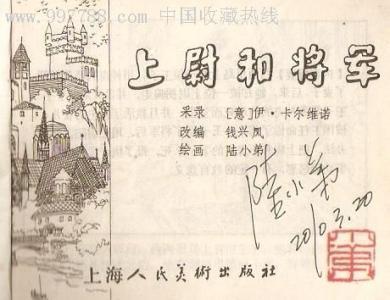 www.997788.com 中国收藏热线
上尉和将军
采录 〔意〕伊·卡尔维诺
改编 钱兴凤
绘画 陆小弟
陆小弟
2010.3.20
上海人民美術出版社